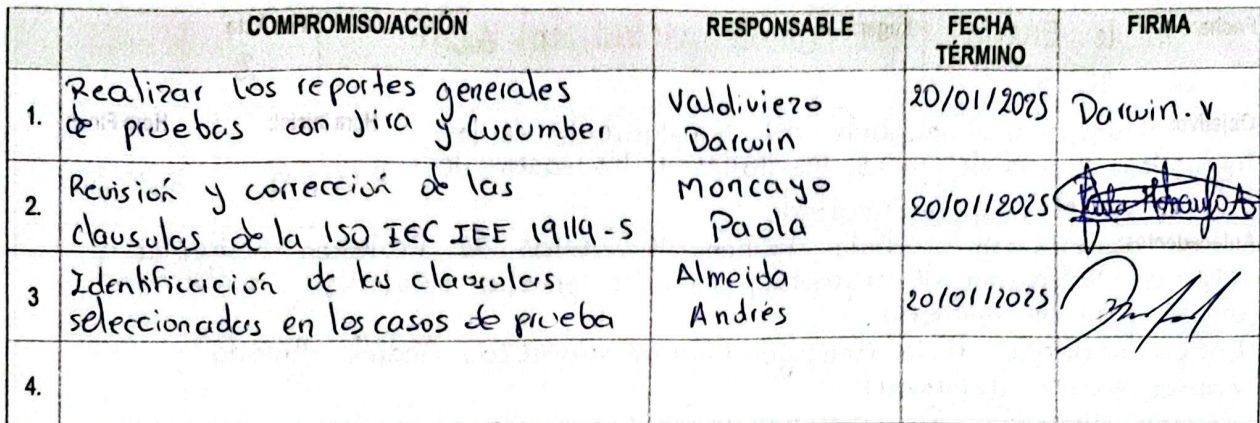 COMPROMISO/ACCIÓN RESPONSABLE FECHA TÉRMINO FIRMA
1. Realizar los reportes generales
de pruebas con Jira y Cucumber
Valdiviezo
Darwin
20/01/2025
Darwin. V
2. Revisión y corrección de las
clausulas de la ISO IEC IEE 19114-5
Moncayo
Paola
20/01/2025
3 Identificación de las clausulas
seleccionadas en los casos de prueba
Almeida
Andrés
20/01/2025
4.